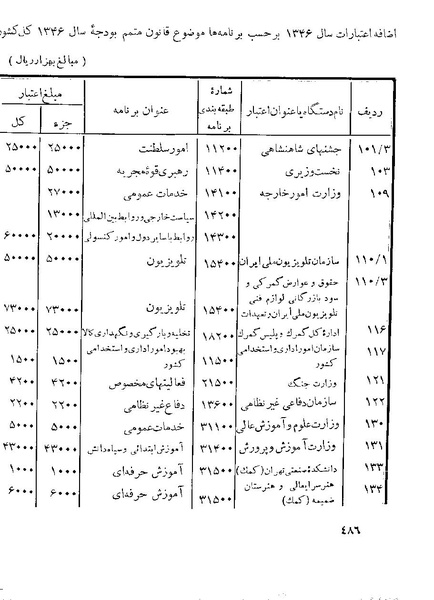 اضافه اعتبارات سال ۱۳۴۶ برحسب برنامه‌ها موضوع قانون متمم بودجهٔ سال ۱۳۴۶ کل‌کشور
( مبالغ بهزار ریال )
ردیف نام‌دستگاه‌یاعنوان‌اعتبار شمارهٔ طبقه‌بندی برنامه عنوان برنامه مبلغ‌اعتبار
جزء کل
۱۰۱/۳ جشنهای شاهنشاهی ۱۱۲۰۰ امور سلطنت ۲۵۰۰۰ ۲۵۰۰۰
۱۰۳ نخست‌وزیری ۱۱۴۰۰ رهبری قوهٔ مجریه ۵۰۰۰۰ ۵۰۰۰۰
۱۰۹ وزارت امور خارجه ۱۴۱۰۰ خدمات عمومی ۲۷۰۰۰
۱۴۲۰۰ سیاست خارجی و روابط بین‌المللی ۱۳۰۰۰
۱۴۳۰۰ روابط با سایر دول و امور کنسولی ۲۰۰۰۰ ۶۰۰۰۰
۱۱۰/۱ سازمان تلویزیون ملی ایران ۱۵۴۰۰ تلویزیون ۵۰۰۰۰ ۵۰۰۰۰
۱۱۰/۳ حقوق و عوارض گمرکی و
سود بازرگانی لوازم فنی
تلویزیون ملی ایران و تعهدات ۱۵۴۰۰ تلویزیون ۷۳۰۰۰ ۷۳۰۰۰
۱۱۶ ادارهٔ کل گمرک و پلیس گمرک ۱۸۲۰۰ تخلیه و بارگیری و نگهداری کالا ۲۵۰۰۰ ۲۵۰۰۰
۱۱۷ سازمان امور اداری و استخدامی بهبود امور اداری و استخدامی
کشور ۱۱۵۰۰ کشور ۱۵۰۰ ۱۵۰۰
۱۲۱ وزارت جنگ ۲۱۵۰۰ فعالیتهای مخصوص ۴۲۰۰ ۴۲۰۰
۱۲۲ سازمان دفاعی غیر نظامی ۱۳۶۰۰ دفاع غیر نظامی ۲۲۰۰ ۲۲۰۰
۱۳۰ وزارت علوم و آموزش عالی ۳۱۱۰۰ خدمات عمومی ۵۰۰۰ ۵۰۰۰
۱۳۱ وزارت آموزش و پرورش ۳۱۴۰۰ آموزش ابتدائی و سپاه دانش ۴۳۰۰۰ ۴۳۰۰۰
۱۳۳ دانشکدهٔ صنعتی تهران (کمک) ۳۱۵۰۰ آموزش حرفه‌ای ۱۰۰۰ ۱۰۰۰
۱۳۴ هنرسرایعالی و هنرستان
ضمیمه (کمک) ۳۱۵۰۰ آموزش حرفه‌ای ۶۰۰۰ ۶۰۰۰
۴۸۶